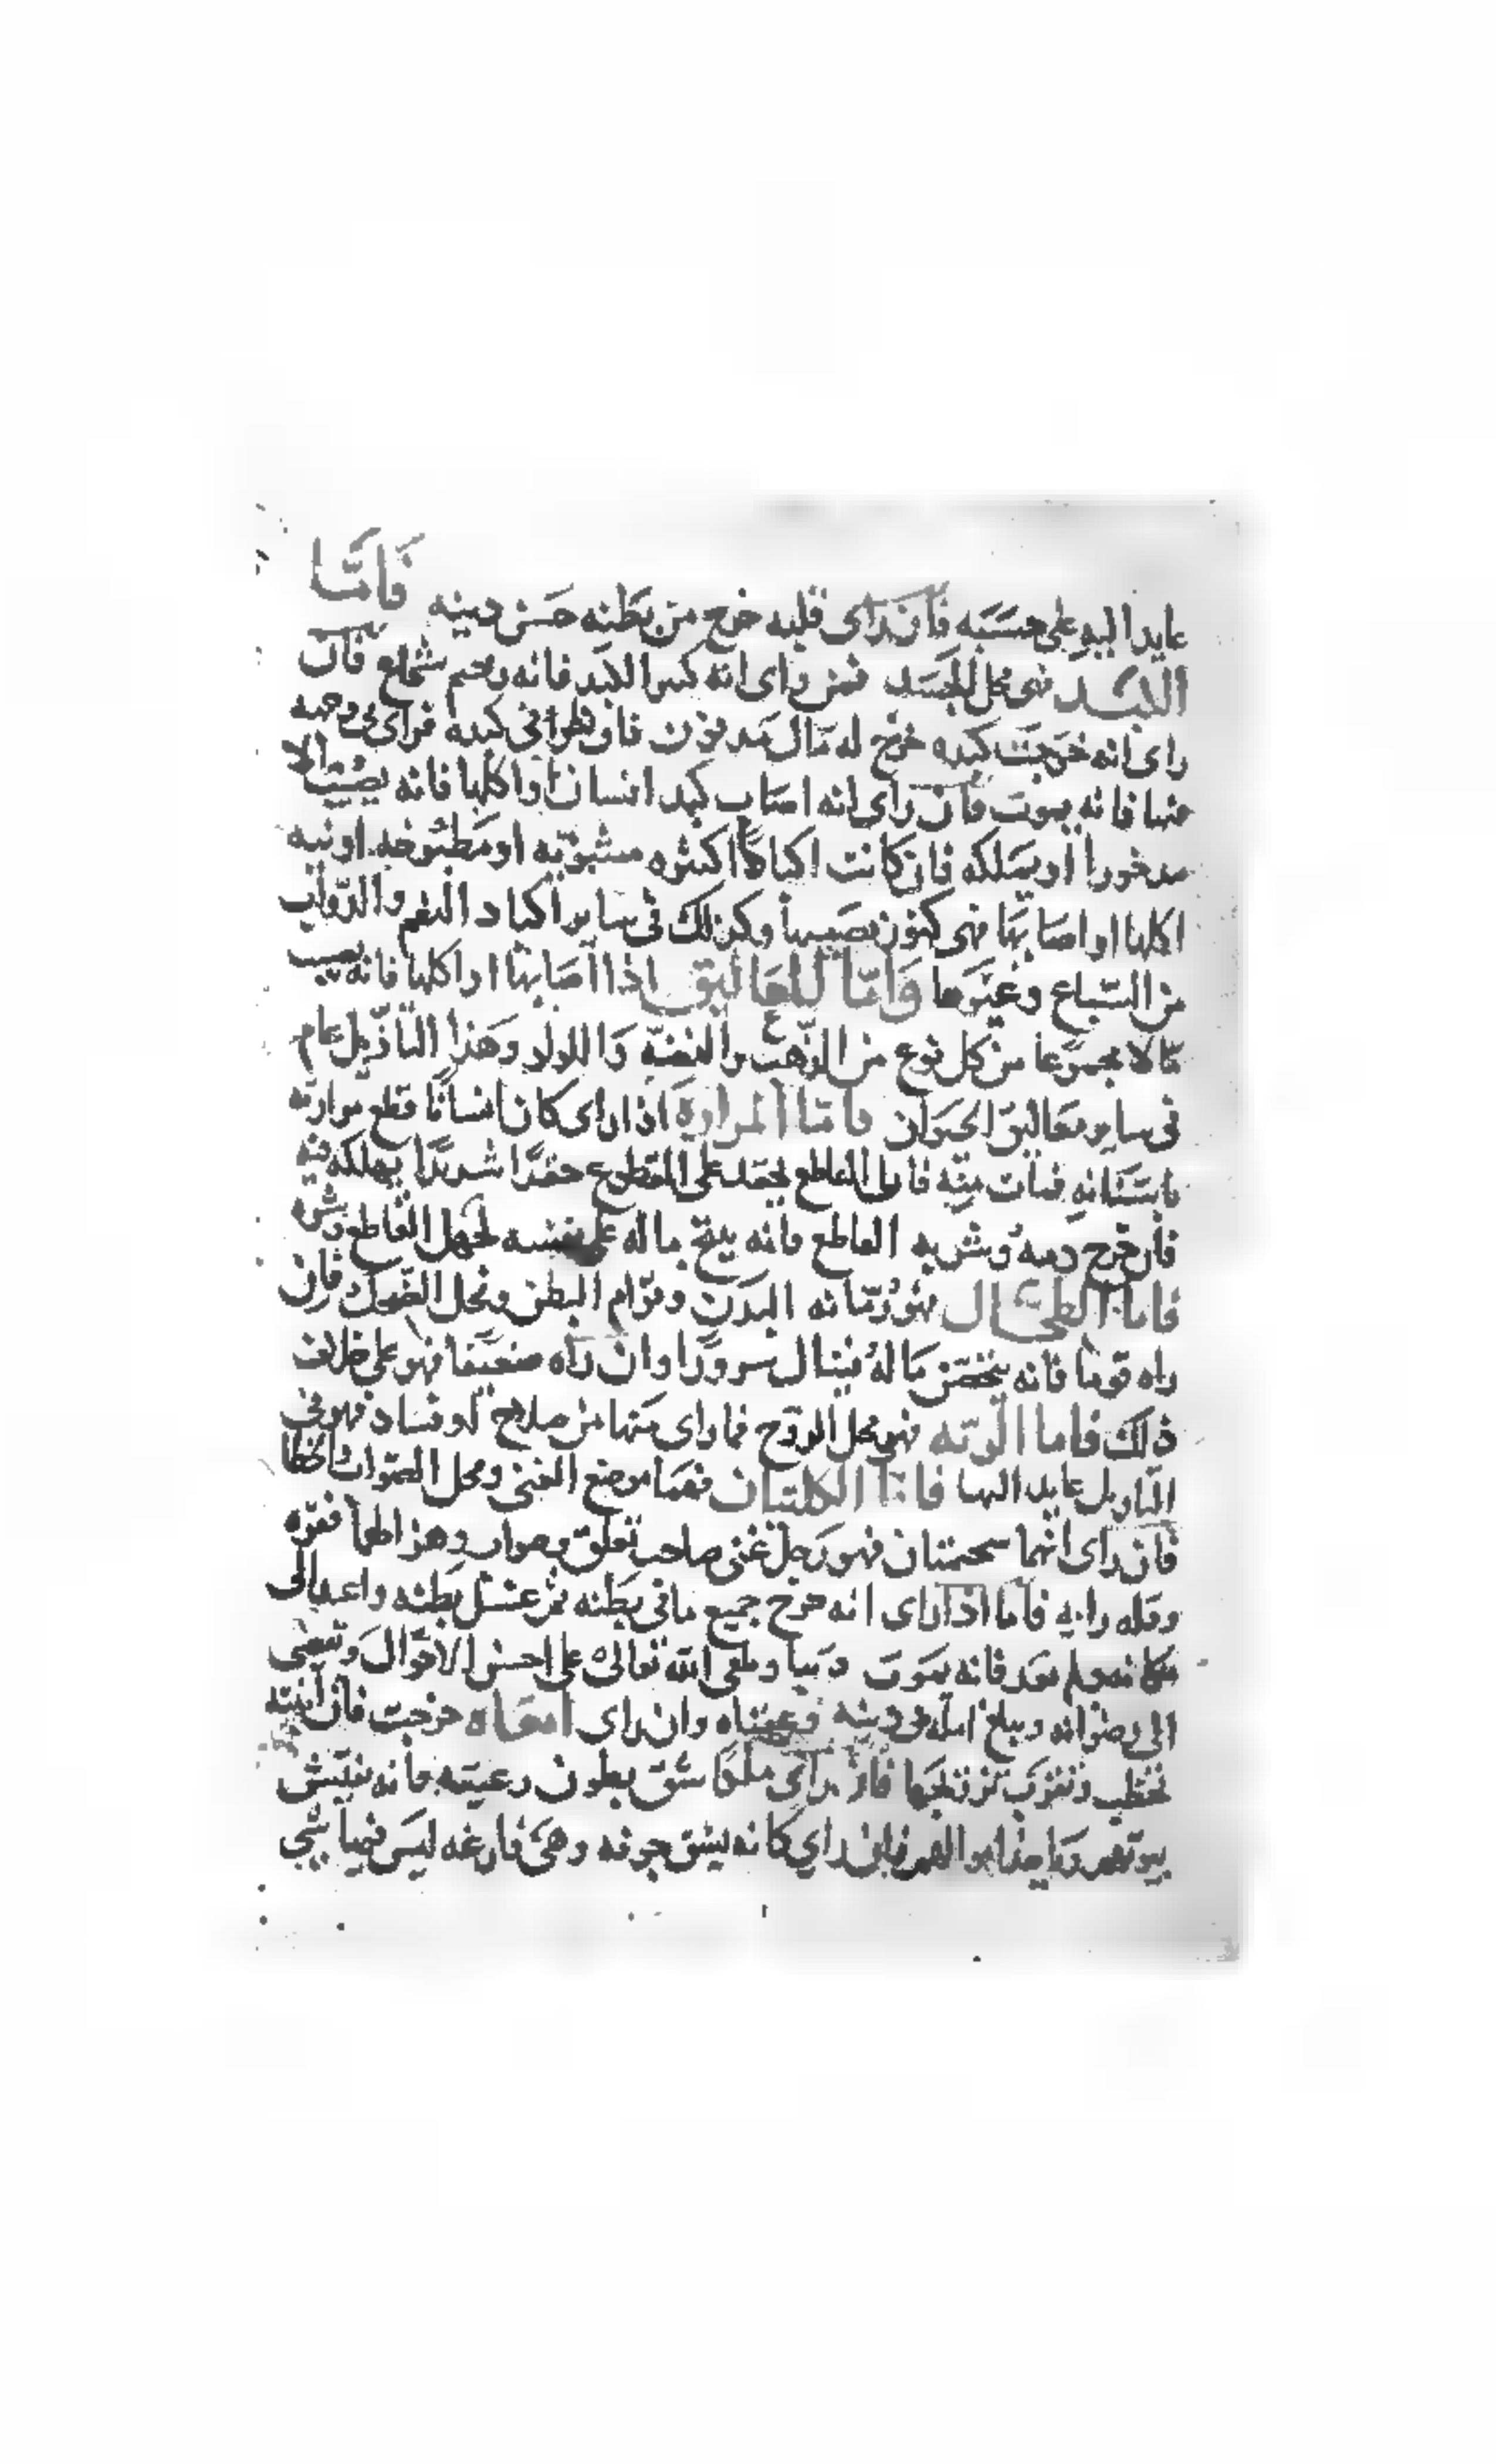 عايدا اليه وعلى حسبه فان راى قلبه خرج من بطنه حسن دينه فامّا
الكبد فهى محل الجسد فمن راى انه كبير الكبد فانه رحيم شجاع فان
راى انه خرجت كبده خرج له مال مدفون فان نظر فى كبده فراى وجهه
منها فانه يموت فان راى انه اصاب كبد انسان او اكلها فانه يصيب مالا
مدخورا او يملكه فان كانت اكبادًا كثيره مشويّه او مطبوخه او نيه
اكلها او اصابها فهى كنوز يصيبها وكذلك فى ساير اكباد الغنم والدّواب
من السّباع وغيرها وامّا المعاليق اذا اصابها او اكلها فانه يصيب
مالا مجموعا من كل نوع من الذّهب والفضّه واللولو وهذا التاويل عام
فى ساير معاليق الحيوان فامّا المرارة اذا راى كان انسانًا قطع مرارته
باسنانه فمات منه فان القاطع يحقد على المقطوع حقدًا شديدًا يهلكه فيه
فان خرج دمه وشربه القاطع فانه ماله على نفسه لجهل القاطع وشره
فاما الطحال فهو رمّانه البدن وقوّام البطن ومحل الضحك فان
راه قويا فانه ماله فينال سرورًا وان راه ضعيفا فهو على خلاف
ذلك فاما الريه فهى محل الروح فما راى منها من صلاح او فساد فهو فى
التاويل عايد اليها فاما الكليتان فهما موضع الغنى ومحل الصواب
فان راى انهما سحيمتان فهو رجل غنى صاحب وصواب
وقله رايه فاما اذا راى انه خرج جميع ما فى بطنه ثم غسل بطنه واعيد الى
مكانه فانه يموت ويلقى الله تعالى على احسن الاحوال
الى رضوانه ويبلغ امله فى دينه وان راى امعاه خرجت فان ابنته
تخطب فان راى ملكا شق بطون رعيته فانه يفتش
بيوتهم وياخذ اموالهم فان راى كانه يشق جوفه وهى فارغه ليس فيها شى